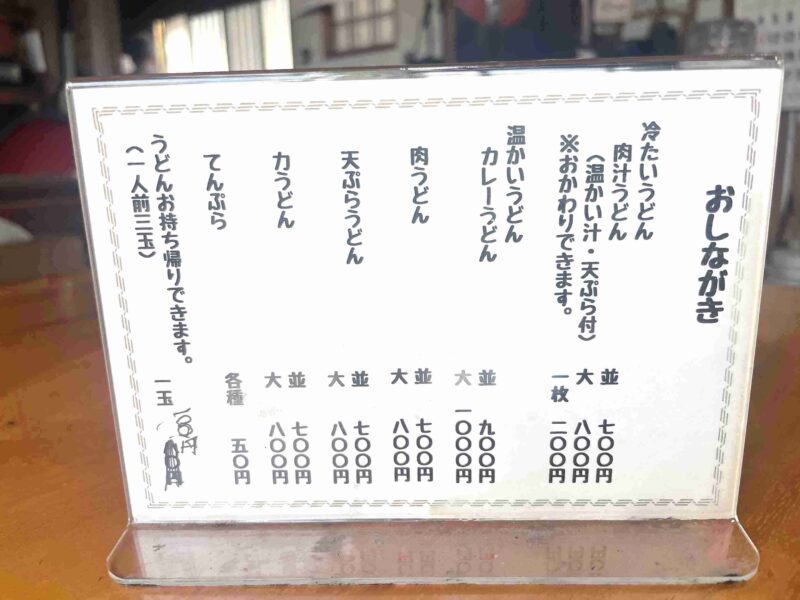 おしながき
冷たいうどん
肉汁うどん 並 七〇〇円
(温かい汁・天ぷら付) 大 八〇〇円
※おかわりできます。 一枚 二〇〇円
温かいうどん
カレーうどん 並 九〇〇円
大 一〇〇〇円
肉うどん 並 七〇〇円
大 八〇〇円
天ぷらうどん 並 七〇〇円
大 八〇〇円
力うどん 並 七〇〇円
大 八〇〇円
てんぷら 各種 五〇円
うどんお持ち帰りできます。
(一人前三玉) 一玉 100円